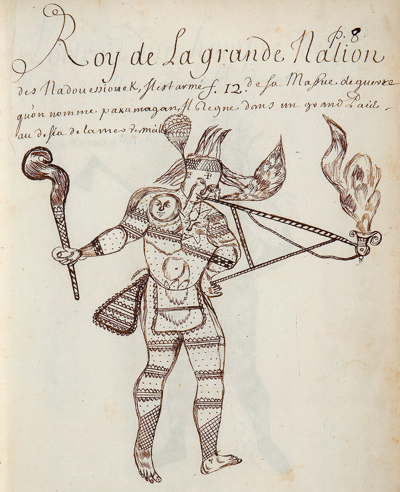 p. 8
Roy de La grande Nation
des Nadouessiouek, Il est armé f. 12. de sa Massue de guerre
qu'on nomme pakamagan, Il Regne dans un grand Païs
au delà de la mer vermeille